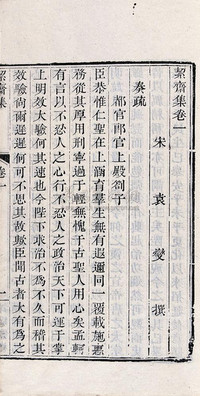 絜齋集卷一
宋 袁燮 撰
奏疏
都官郎官上殿劄子
臣恭惟仁聖在上涵育羣生無有遐邇同一覆載施惠
務從其厚用刑寧過于輕無愧于古聖人用心矣孟軻
有言以不忍人之心行不忍人之政治天下可運于掌
上明效大驗何其速也今陛下求治不為不久而稽其
效驗尚爾遲遲何可不思其故歟臣聞古者大有為之
絜齋集 卷一 一